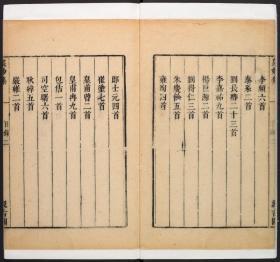 李頻六首
秦系二首
劉長卿二十三首
楊巨源二首
李嘉祐九首
劉得仁三首
朱慶餘五首
雍陶四首
郎士元四首
崔塗七首
皇甫曾二首
皇甫冉九首
包佶一首
司空曙六首
耿湋五首
嚴維二首
目錄二